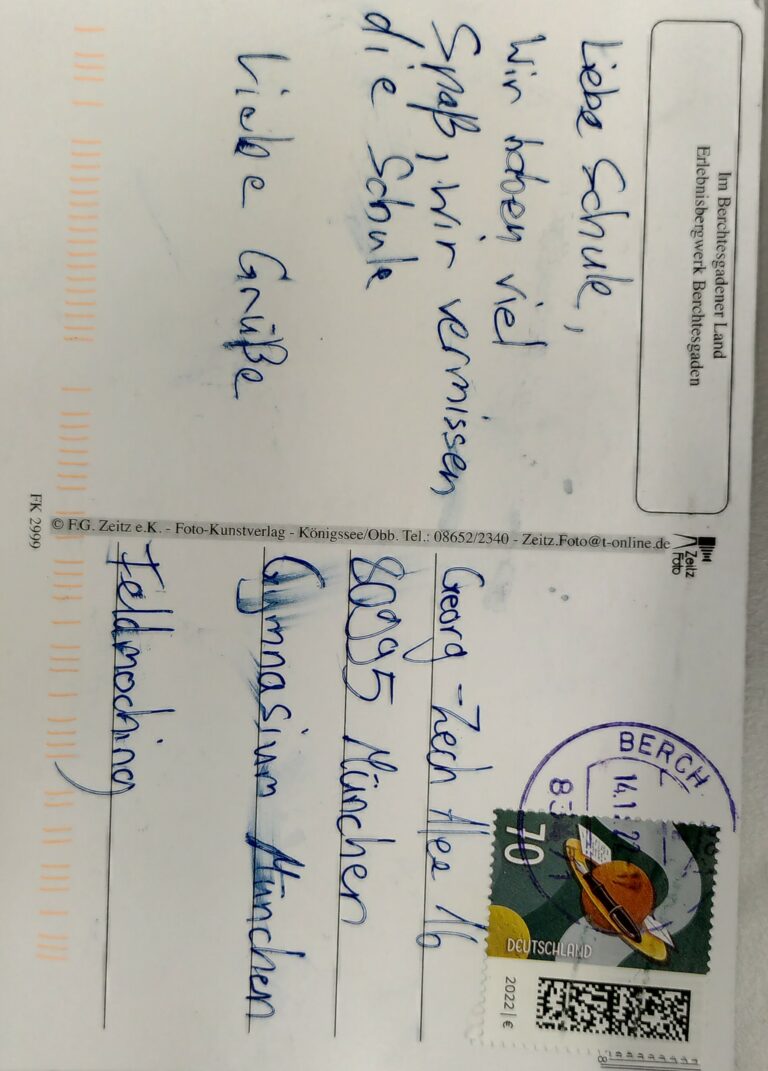 Im Berchtesgadener Land
Erlebnisbergwerk Berchtesgaden
Liebe Schule,
Wir haben viel
Spaß, wir vermissen
die Schule
Liebe Grüße
© F.G. Zeitz e.K. - Foto-Kunstverlag - Königssee/Obb. Tel.: 08652/2340 - Zeitz.Foto@t-online.de
Zeitz
Foto
FK 2999
BERCH
14.1
70
DEUTSCHLAND
2022 | €
Georg-Zech Alee 16
80995 München
Gymnasium München
Feldmoching